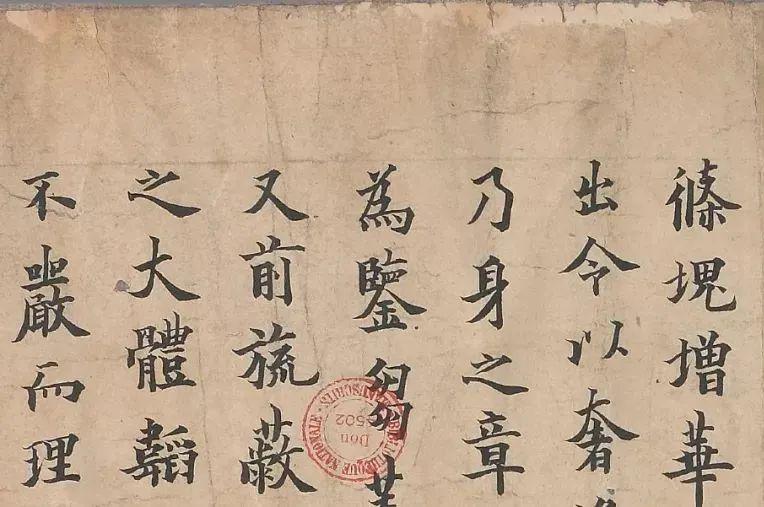 絛塊增華
出令以奢
乃身之章
為鑒芻
又前旒蔽
之大體韜
不嚴而理
BIBLIOTHÈQUE NATIONALE MANUSCRITS
Don
8502